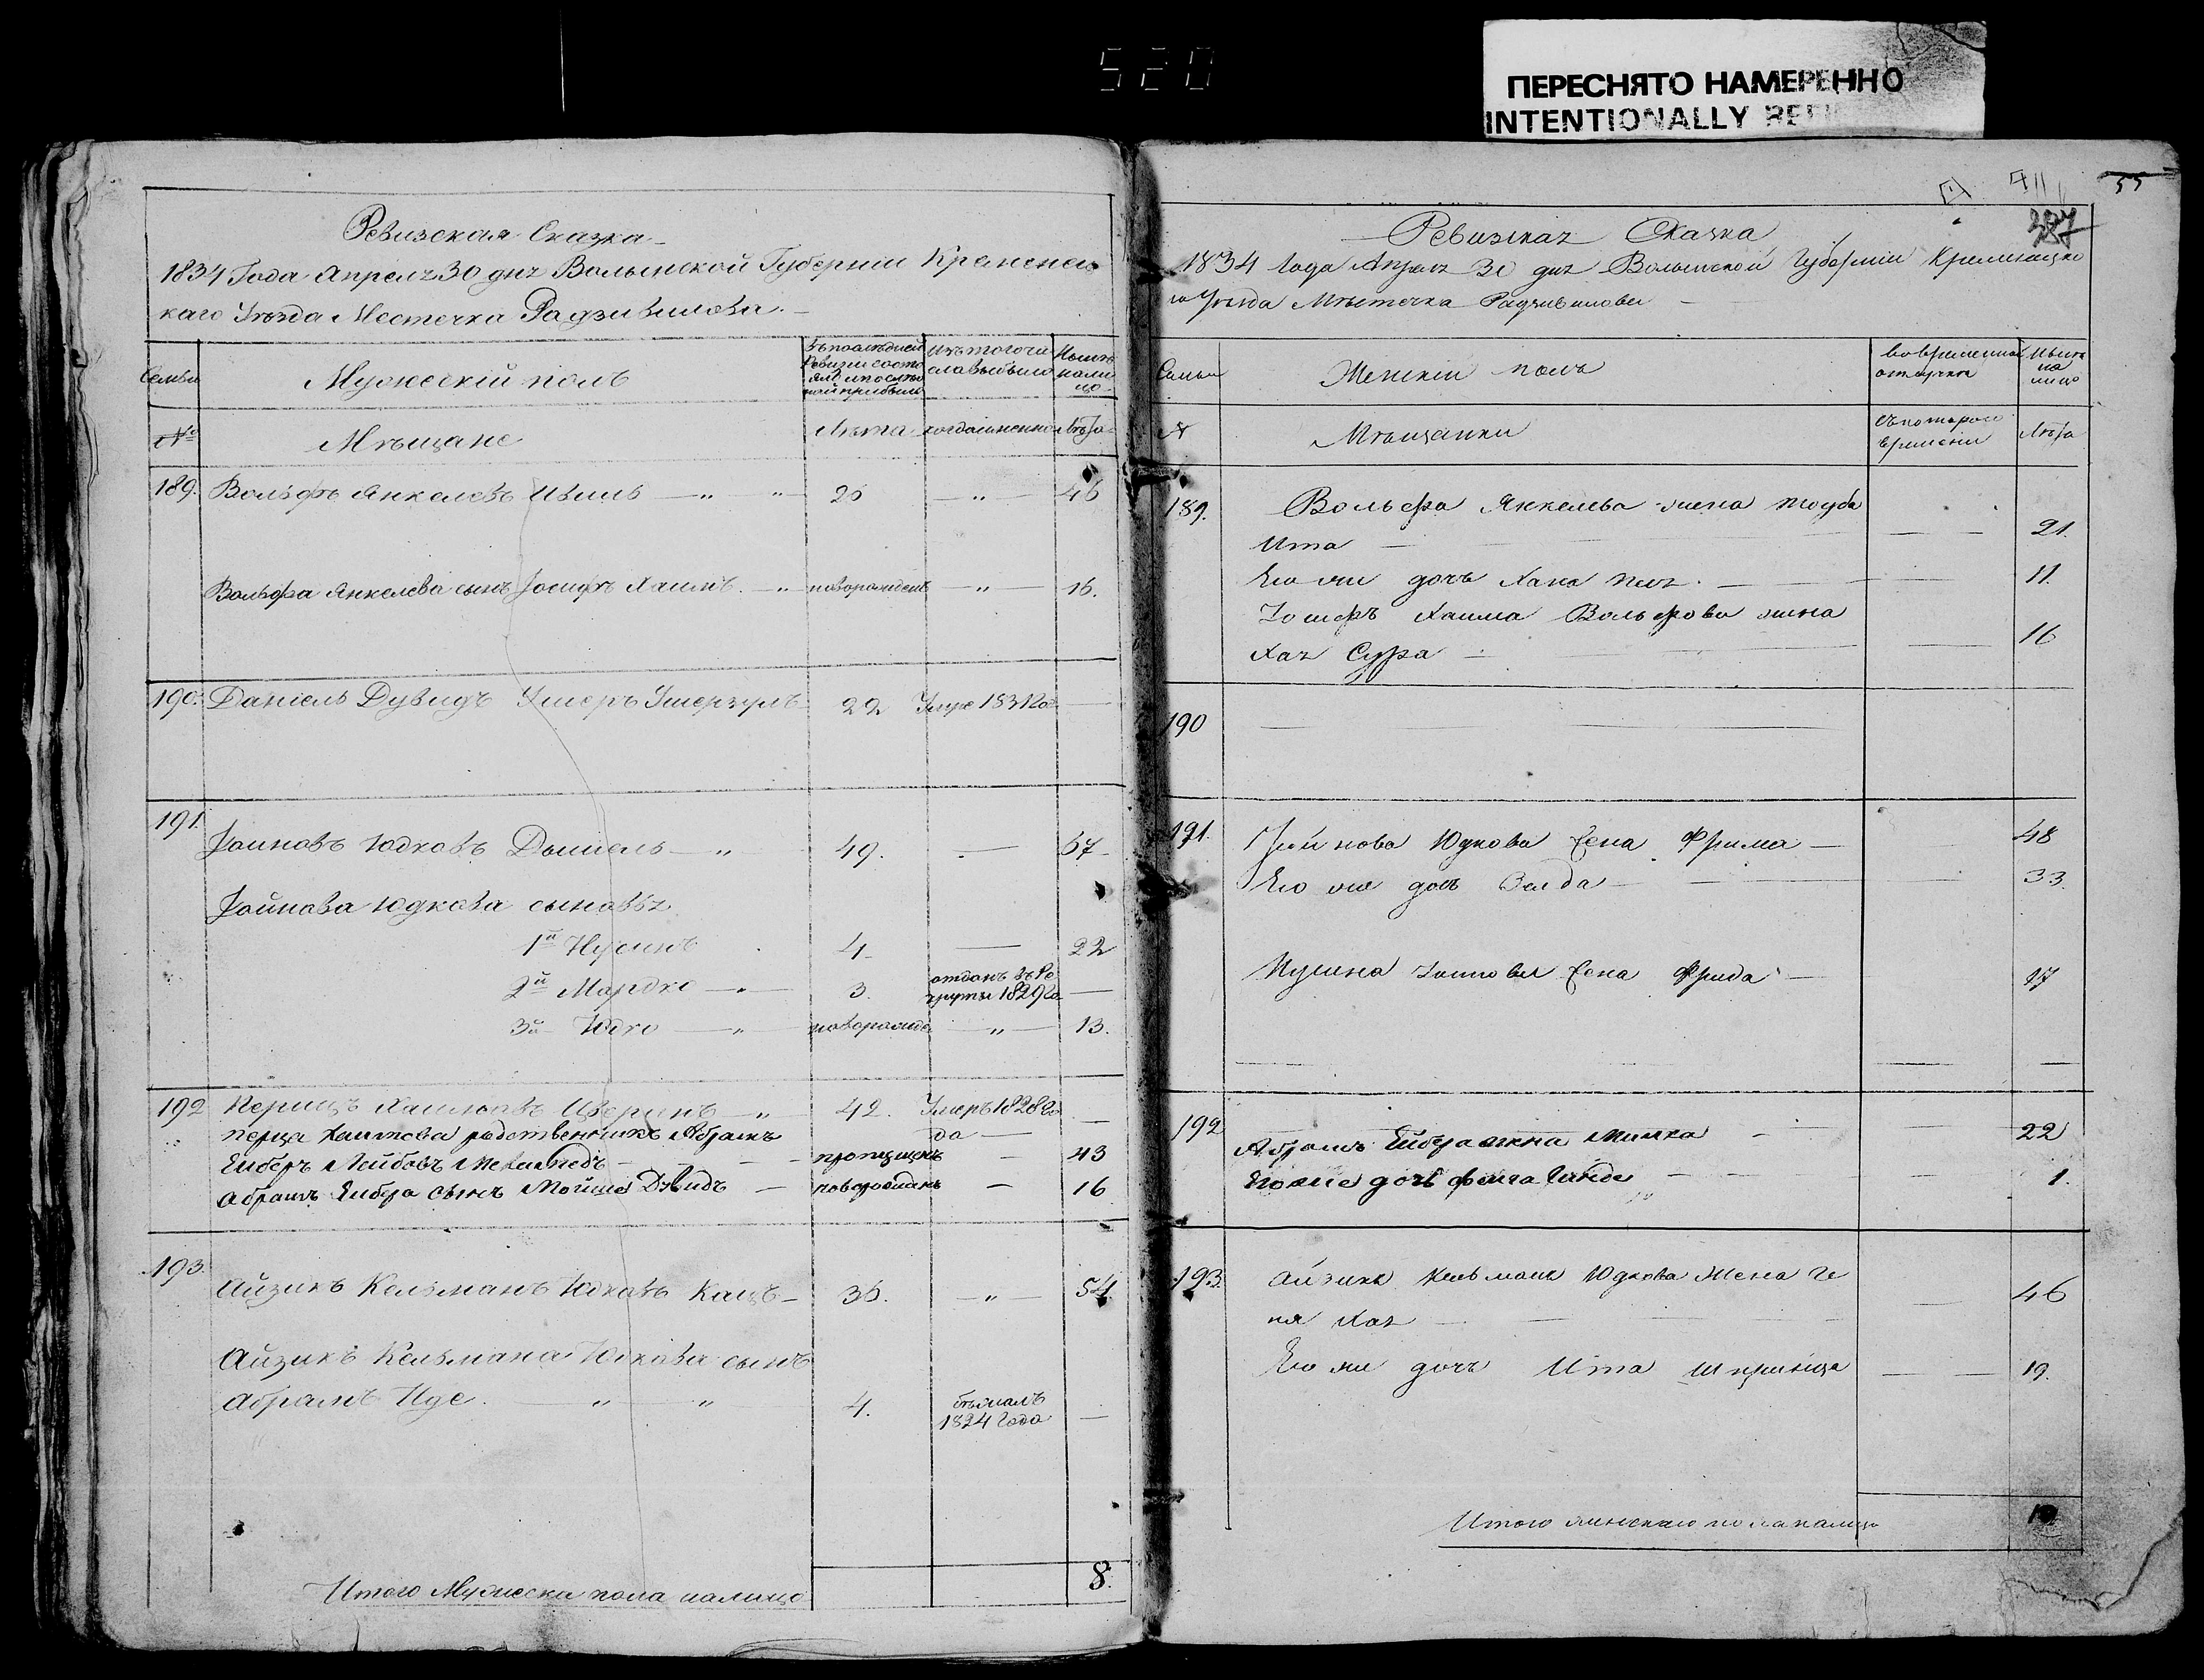 520
ПЕРЕСНЯТО НАМЕРЕННО
INTENTIONALLY
Ревизская Сказка
1834 Года Апреля 30 дня Волынской Губернии Кременец
каго Уезда Местечка Радзивилова.
Семьи
Мужеский полъ
Въ последней Ревизии состояло и после оной прибыло
Изъ того числа выбыло
Ныне на лицо
№
Мѣщане
Лѣта
когда именно
Лѣта
189. Вольфъ Янкелевъ 26 — " — 46
Вольфа Янкелева сынъ Іосифъ Хаимъ. новорожденъ — " — 16.
190. Даніель Дувидъ 22 —
191. Іойновъ Юдковъ 49. — 67
Іойнова Юдкова сыновья
1й Нусинъ 4 — 22
2й Мордко — " — 3. отданъ въ Ре
круты 1829 го —
3й Юдко — " — новорожде — " — 13.
192 Перецъ Хаимовъ Цверинъ — " 42. Умеръ 1828 го —
Перца Хаимова родственникъ Абрамъ да —
Ейберъ Лейбовъ Меламедъ — пропущенъ — 43
Абрамъ Ейбера сынъ Мойше Дувидъ — новорожденъ — 16
193. Айзикъ Кельманъ Юдковъ Кацъ — 36. — " — 54.
Айзикъ Кельмана Юдкова сынъ
Абрамъ Иде. " " 4. бѣжалъ
1824 Года —
Итого Мужеска пола налицо 8.
55
711
387
Ревизская Сказка
1834 Года Апреля 30 дня Волынской Губернии Кременецка
го Уезда Мѣстечка Радзивилова —
Семьи
Женский полъ
во временной отлучке
Ныне на лицо
№
Мѣщанки
съ котораго времени
Лѣта
189. Вольфа Янкелева жена Тоуба
Ита — 21.
Его же дочь Хана — 11.
Іосифъ Хаима Вольфова жена
Хая Сура — 16
190 —
191. Іойнова Юдкова жена Фрима — 48
Его же дочь Зелда — 33.
Нусина жена Фрида — 17
192 Абрамъ Ейбера жена Милка — 22
Его же дочь Гинде — 1.
193. Айзика Кельмана Юдкова Жена Ге
ня Хая — 46
Его же дочь Ита Шпринца — 19.
Итого женскаго пола налицо 10